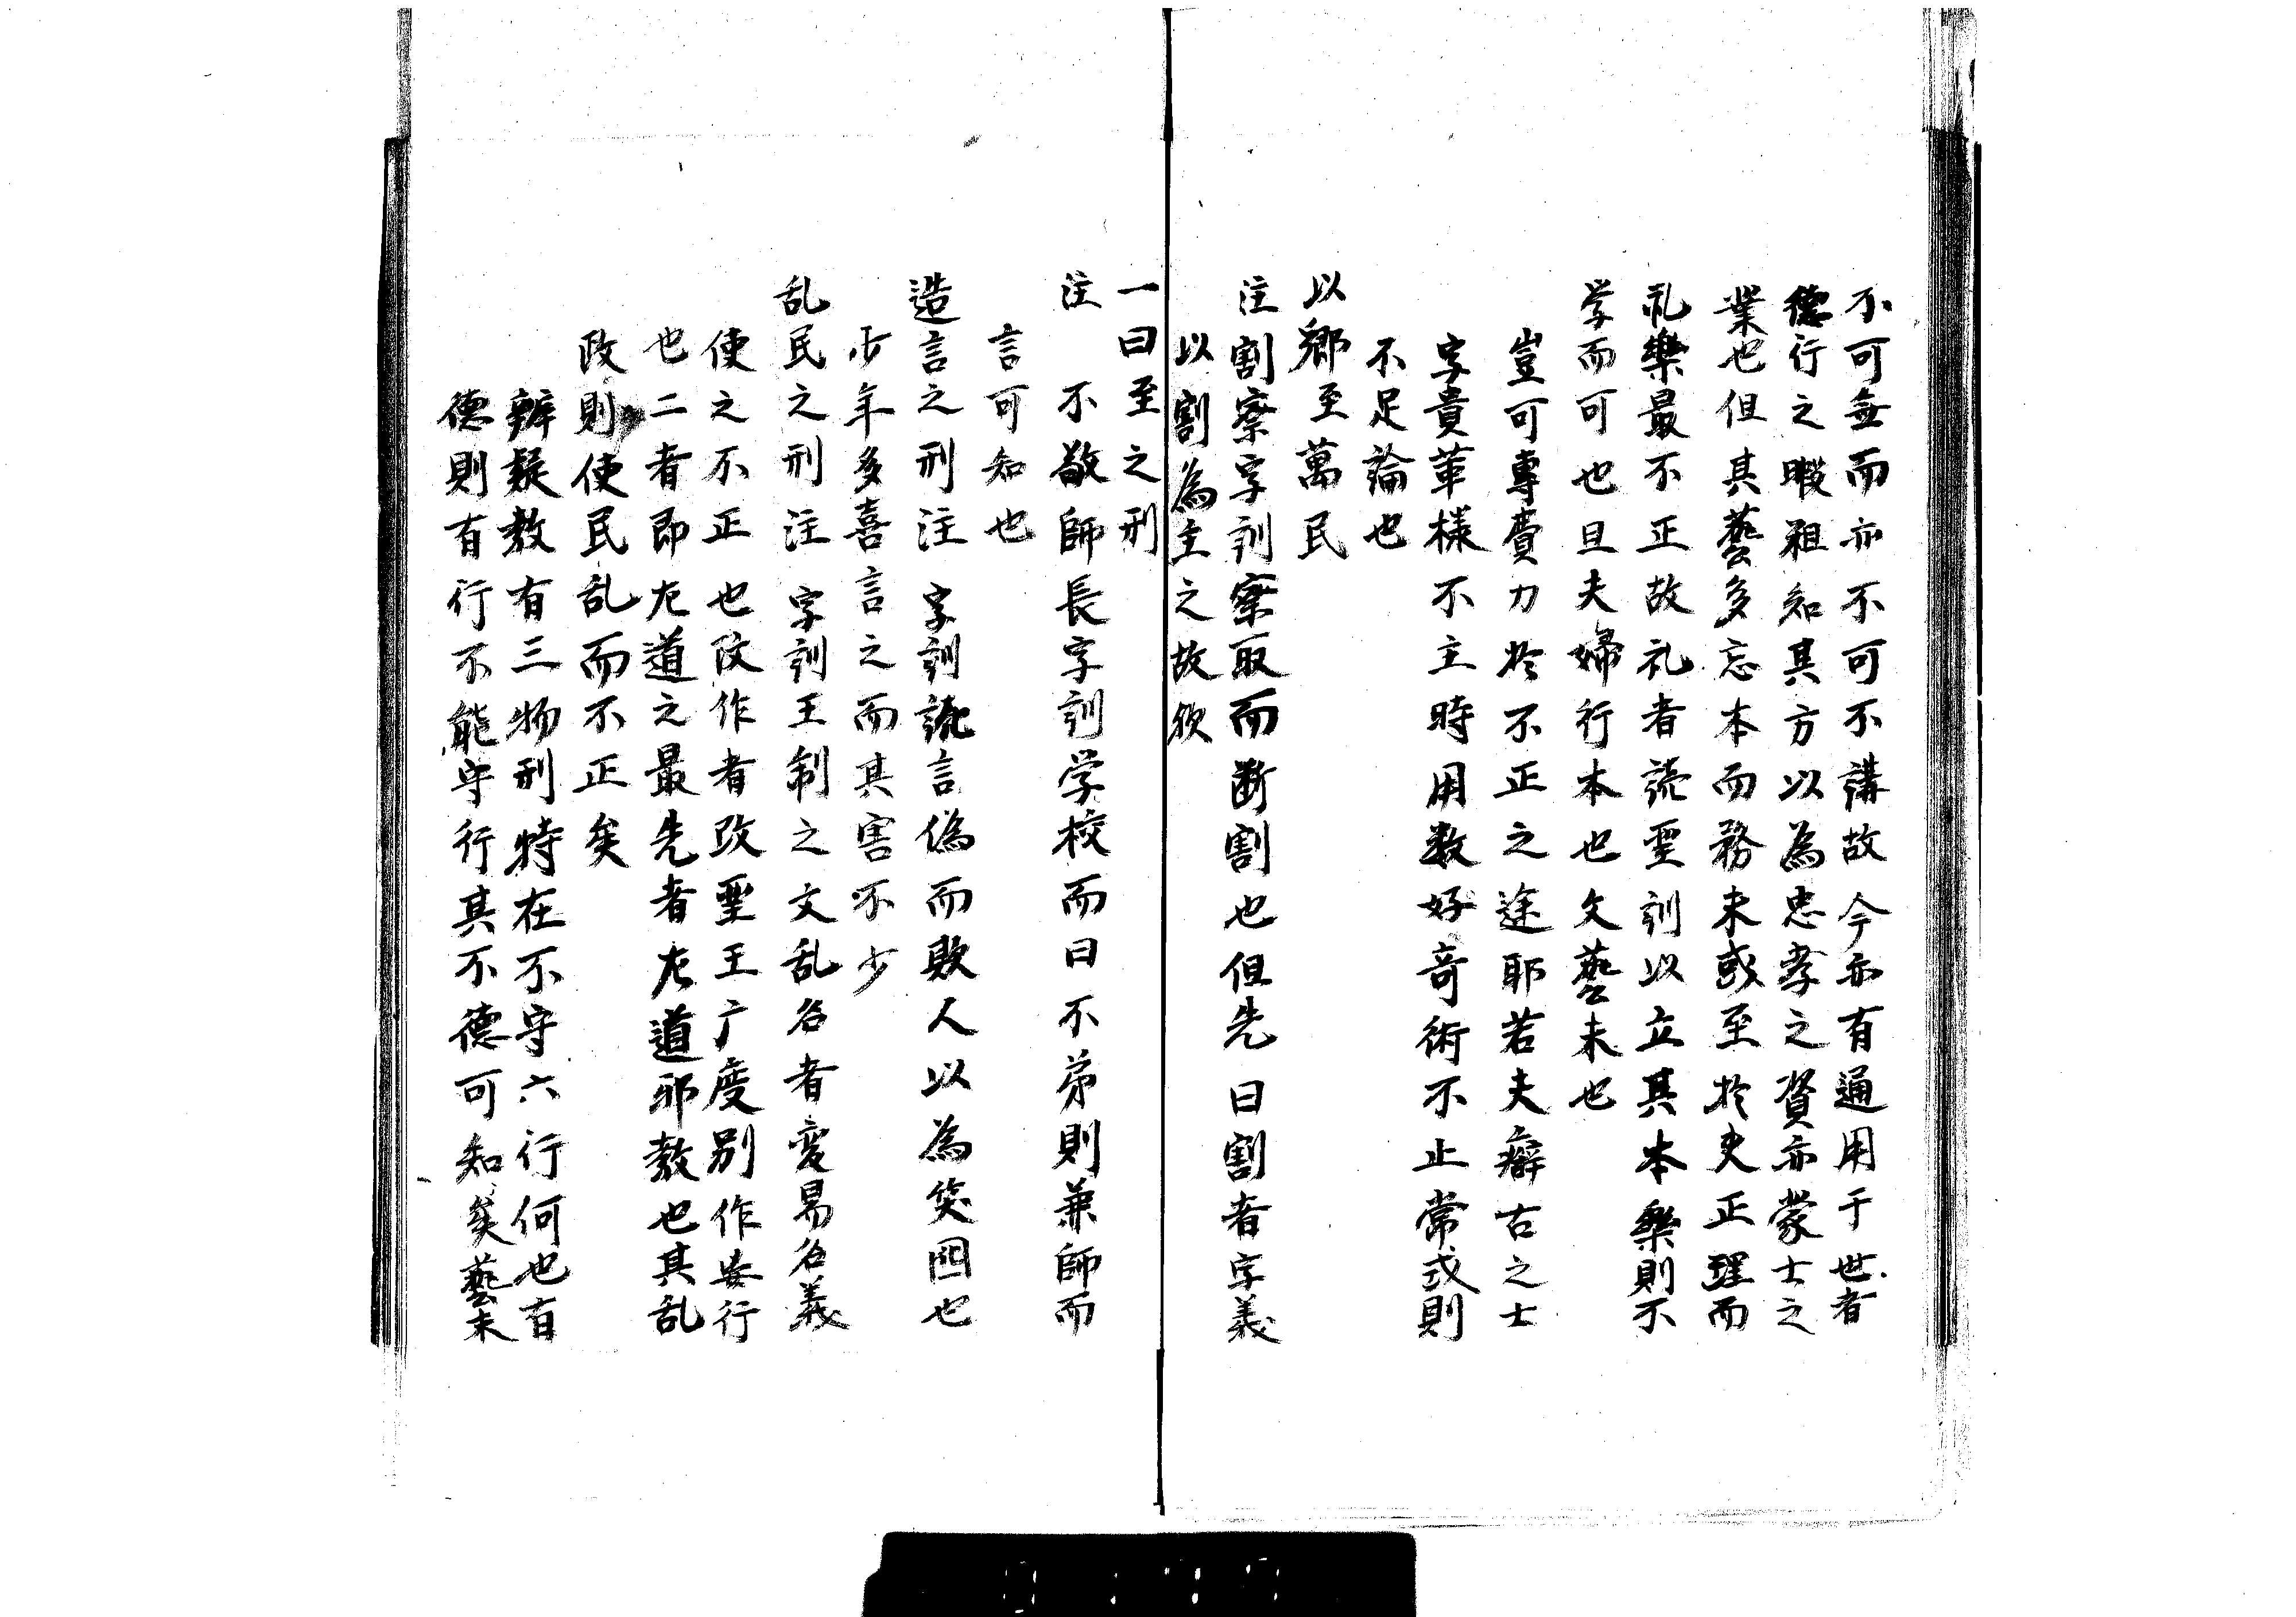 不可無而亦不可不講故今亦有通用于世者
德行之暇粗知其方以為忠孝之資亦蒙士之
業也但其藝多忘本而務末或至於失正理而
礼樂最不正故礼者読聖訓以立其本樂則不
学而可也且夫婦行本也文藝末也
豈可專費力於不正之途耶若夫癖古之士
字貴華様不主時用数好奇術不止常或則
不足論也
以鄉至萬民
注割察字訓察取而断割也但先曰割者字義
以割為主之故欤
一曰至之刑
注 不敬師長字訓学校而曰不弟則兼師而
言可知也
造言之刑注 字訓訛言偽而欺人以為笑囮也
少年多喜言之而其害不少
乱民之刑注 字訓王制之文乱名者変易名義
使之不正也改作者改聖王广度別作妄行
也二者即左道之最先者左道邪教也其乱
政則使民乱而不正矣
辨疑教有三物刑特在不守六行何也有
德則有行不能守行其不德可知矣藝末